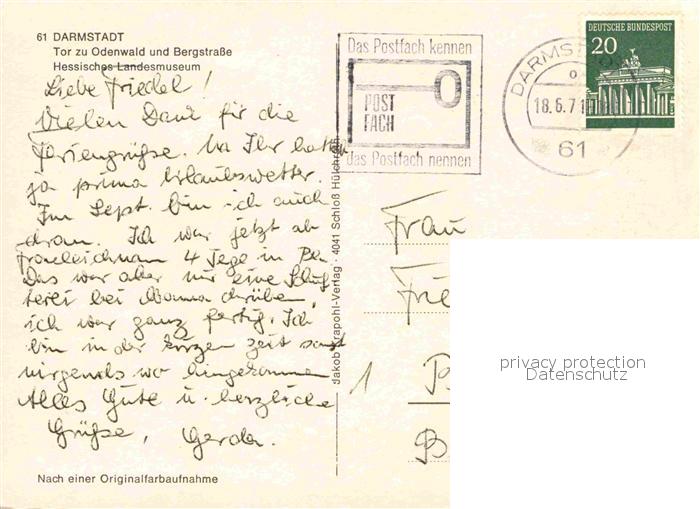 61 DARMSTADT
Tor zu Odenwald und Bergstraße
Hessisches Landesmuseum
Liebe Friedel!
Vielen Dank für die
Feriengrüße. Na Ihr hattet
ja prima Urlaubswetter.
Im Sept. bin ich auch
dran. Ich war jetzt ab
Fronleichnam 4 Tage in
Das war aber nur eine
bei Mamma drüben,
ich war ganz fertig. Ich
bin in der kurzen Zeit sonst
nirgends wo hingekommen
Alles Gute u. herzliche
Grüße, Gerda.
Nach einer Originalfarbaufnahme
Jakob Krapohl-Verlag · 4041 Schloß Hülchrath
Das Postfach kennen
POST
FACH
das Postfach nennen
DARMST
18.6.71
61
DEUTSCHE BUNDESPOST
20
Frau
Frie
1
B
privacy protection
Datenschutz